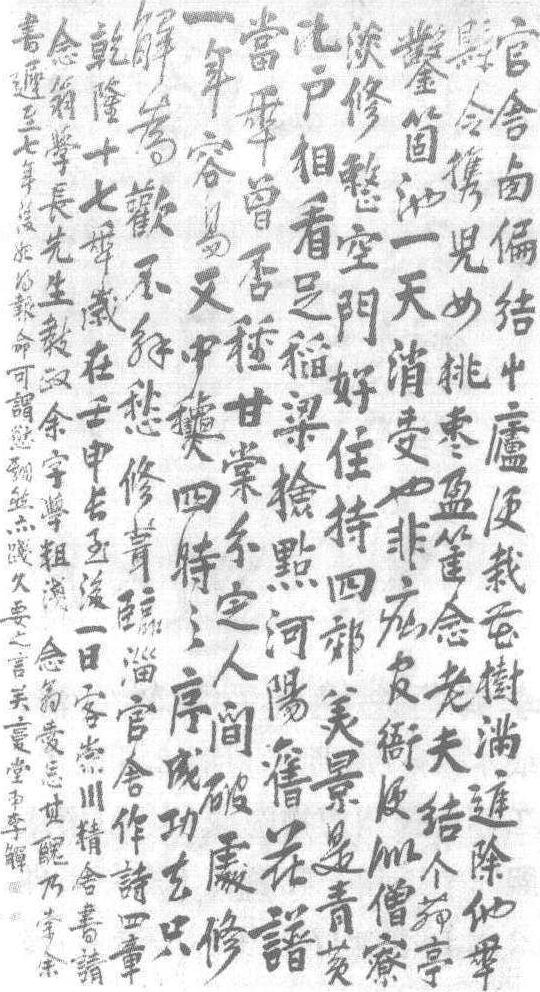 官舍卤偏結屮廬便栽花樹滿庭除他年
縣令攜兒女桃棗盈筐念老夫結个茆亭
鑿箇池一天消受也非疵官衙便似僧寮
淡修整空門好住持四郊美景是青黃
比戶相看足稻梁搶點河陽舊花譜
當年曾否種甘棠不定人間破處修
一年容易又中穐四時之序成功去只
解為歡不解愁修葺臨淄官舍作詩四章
乾隆十七年歲在壬申長至後一日客崇川精舍書請
念翁學長先生教政余字學粗淺念翁愛忘其醜乃索余
書遲至七年後始為報命可謂然亦踐久要之言矣堂弟李鱓